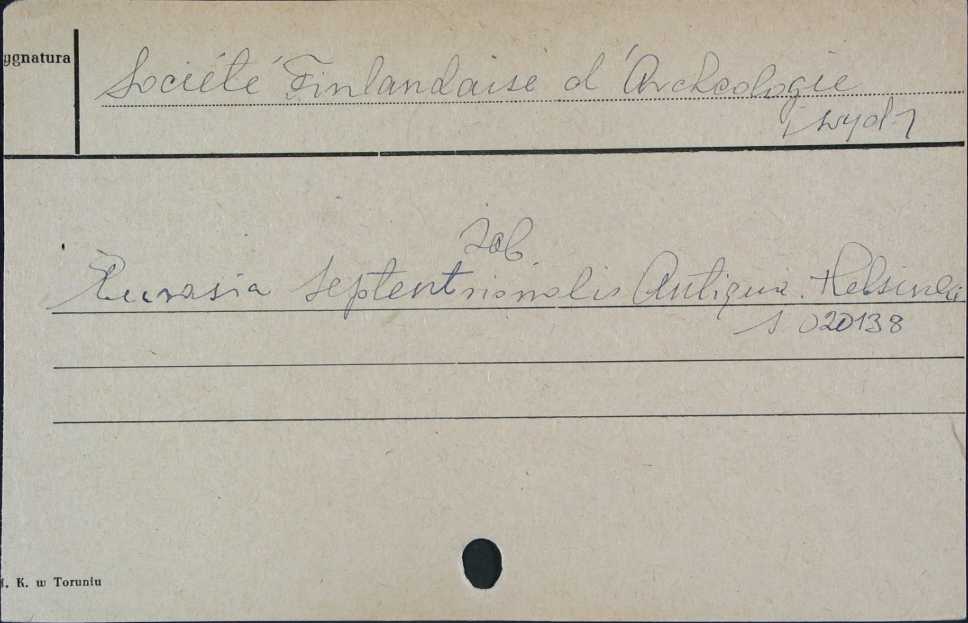 ygnatura
Société Finlandaise d'Archeologie
[wyd.]
zob.
Eurasia Septentrionalis Antiqua. Helsinki
S 020138
K. w Toruniu